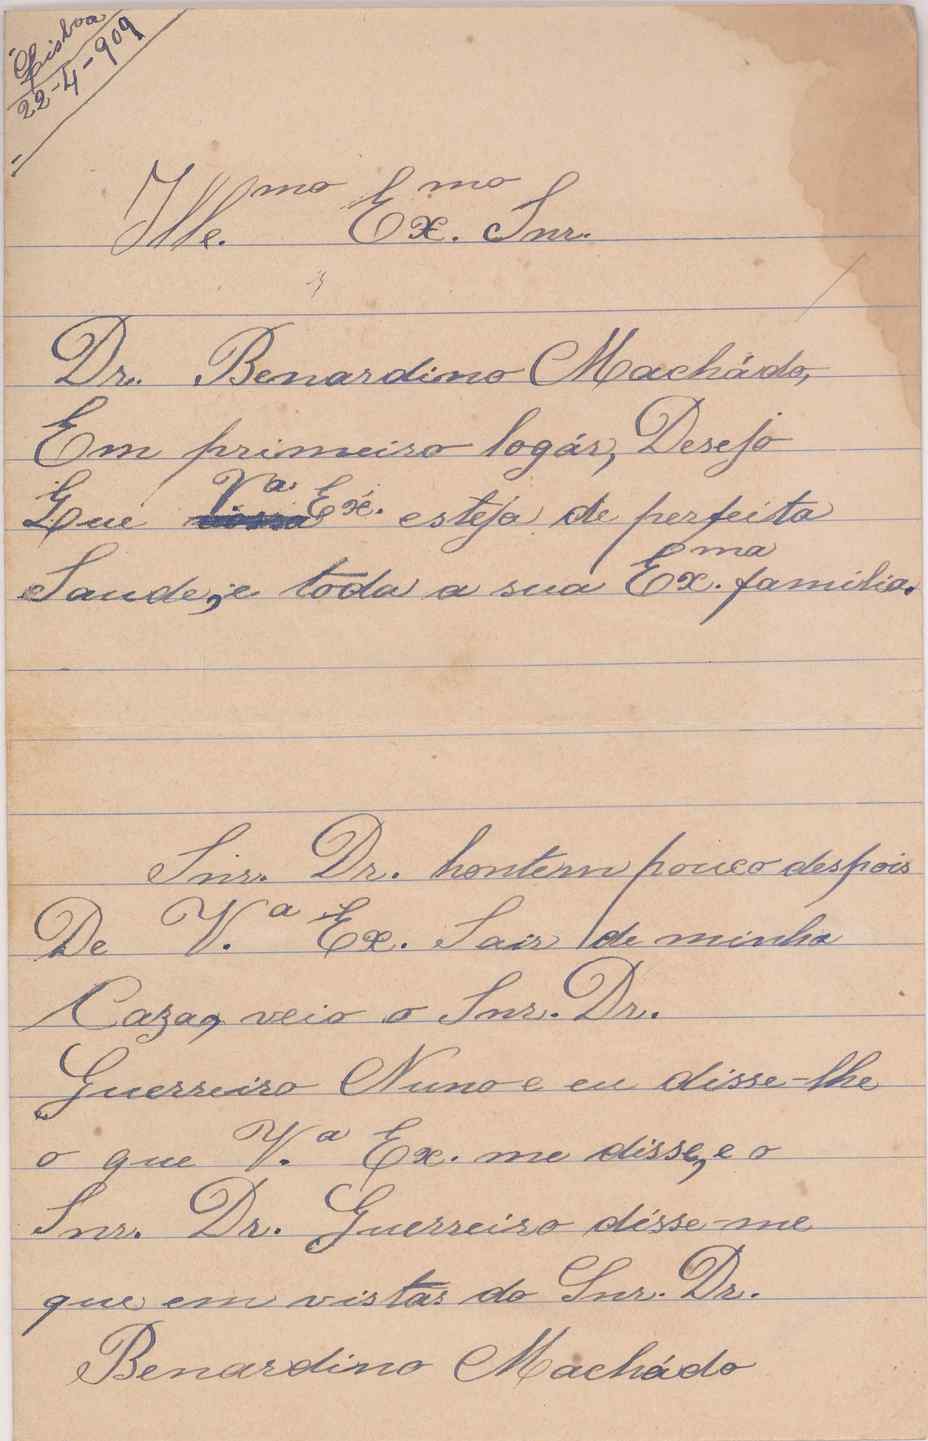 Lisboa
22-4-909
Ille.mo Ex.mo Snr.
Dr. Benardino Machádo,
Em primeiro logár, Desejo
Que V.a Ex. esteja de perfeita
Saude, e toda a sua Ex.ma família.
Snr. Dr. hontem pouco despois
De V.a Ex. Sair de minha
Caza, veio o Snr. Dr.
Guerreiro Nuno e eu disse-lhe
o que V.a Ex. me disse, e o
Snr. Dr. Guerreiro disse-me
que em vistas do Snr. Dr.
Benardino Machádo